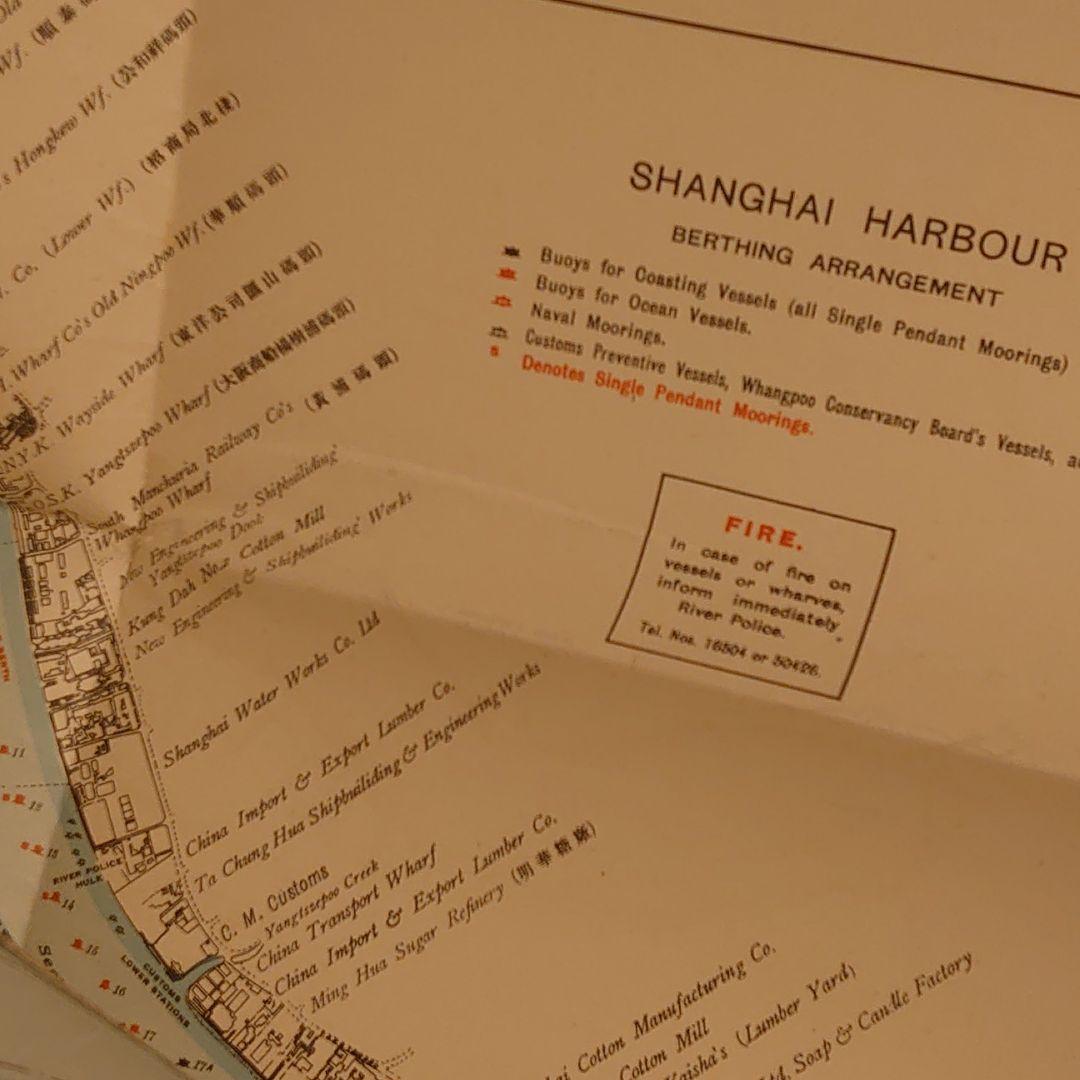 SHANGHAI HARBOUR
BERTHING ARRANGEMENT
Buoys for Coasting Vessels (all Single Pendant Moorings)
Buoys for Ocean Vessels.
Naval Moorings.
Customs Preventive Vessels, Whangpoo Conservancy Board's Vessels,
S Denotes Single Pendant Moorings.
FIRE.
In case of fire on
vessels or wharves,
inform immediately
River Police.
Tel. Nos.
Wf.
Hongkew Wf. (公和祥碼頭)
Co. (Lower Wf.) (招商局北棧)
Wharf Co's Old Ningpo Wf. (華順碼頭)
N.Y.K. Wayside Wharf (東洋公司匯山碼頭)
O.S.K. Yangtszepoo Wharf (大阪商船楊樹浦碼頭)
South Manchuria Railway Co's (黃浦碼頭)
Whangpoo Wharf
New Engineering & Shipbuilding
Yangtszepoo Dock
Kung Dah No.2 Cotton Mill
New Engineering & Shipbuilding Works
Shanghai Water Works Co. Ltd
China Import & Export Lumber Co.
Ta Chung Hua Shipbuilding & Engineering Works
C. M. Customs
Yangtszepoo Creek
China Transport Wharf
China Import & Export Lumber Co.
Ming Hua Sugar Refinery (明華糖廠)
Cotton Manufacturing Co.
Cotton Mill
Kaisha's (Lumber Yard)
Soap & Candle Factory
11
RIVER POLICE
HULK
14
15
16
17
17A
CUSTOMS
LOWER STATIONS